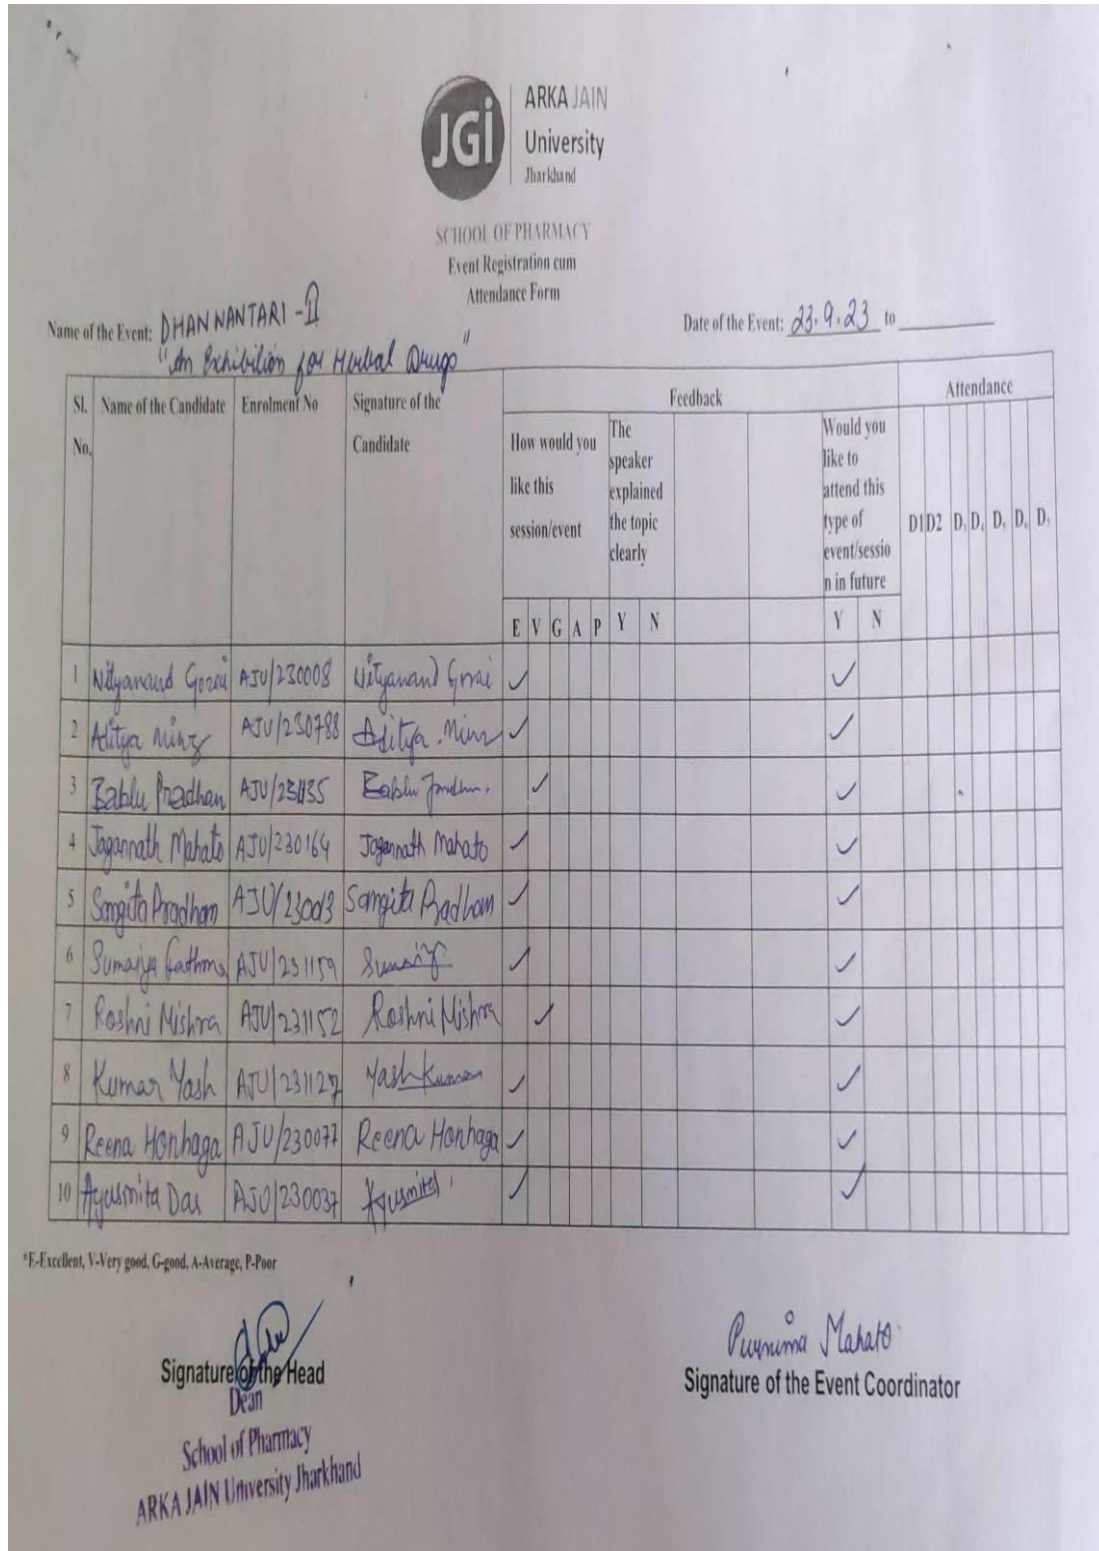 JGi
ARKA JAIN
University
Jharkhand
SCHOOL OF PHARMACY
Event Registration cum
Attendance Form
Name of the Event: DHANWANTARI - II
"An Exhibition for Herbal Drugs"
Date of the Event: 23.9.23 to
Sl. No. Name of the Candidate Enrolment No Signature of the Candidate Feedback Attendance
How would you like this session/event The speaker explained the topic clearly Would you like to attend this type of event/session in future D1 D2 D3 D4 D5 D6 D7
E V G A P Y N Y N
1 Nityanand Gorai AJU/230008 Nityanand Gorai ✓ ✓
2 Aditya Minz AJU/230788 Aditya Minz ✓ ✓
3 Bablu Pradhan Bablu ✓ ✓
4 Jagannath Mahato AJU/230164 Jagannath Mahato ✓ ✓
5 Sangita Pradhan Sangita Pradhan ✓ ✓
6 Sumaiya Fathma AJU/231159 ✓ ✓
7 Roshni Mishra AJU/231152 Roshni Mishra ✓ ✓
8 Kumar Yash AJU/231127 Yash Kumar ✓ ✓
9 Reena Honhaga AJU/230077 Reena Honhaga ✓ ✓
10 Ayusmita Das AJU/230037 Ayusmita ✓ ✓
*E-Excellent, V-Very good, G-good, A-Average, P-Poor
Signature of the Head
Dean
School of Pharmacy
ARKA JAIN University Jharkhand
Purnima Mahato
Signature of the Event Coordinator